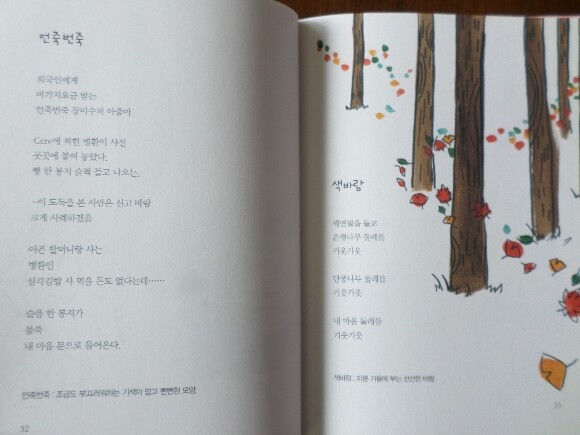 언죽번죽
외국인에게
바가지요금 받는
언죽번죽 장미수퍼 아줌마
Cctv에 찍힌 병환이 사진
곳곳에 붙여 놓았다.
빵 한 봉지 슬쩍 들고 나오는,
-이 도둑을 본 사람은 신고 바람
크게 사례하겠음
아픈 할머니랑 사는
병환인
삼각김밥 사 먹을 돈도 없다는데……
슬픔 한 봉지가
불쑥
내 마음 문으로 들어온다.
언죽번죽 : 조금도 부끄러워하는 기색이 없고 뻔뻔한 모양.
32
색바람
색연필을 들고
은행나무 둘레를
기웃기웃
단풍나무 둘레를
기웃기웃
내 마음 둘레를
기웃기웃
색바람 : 이른 가을에 부는 선선한 바람.
33